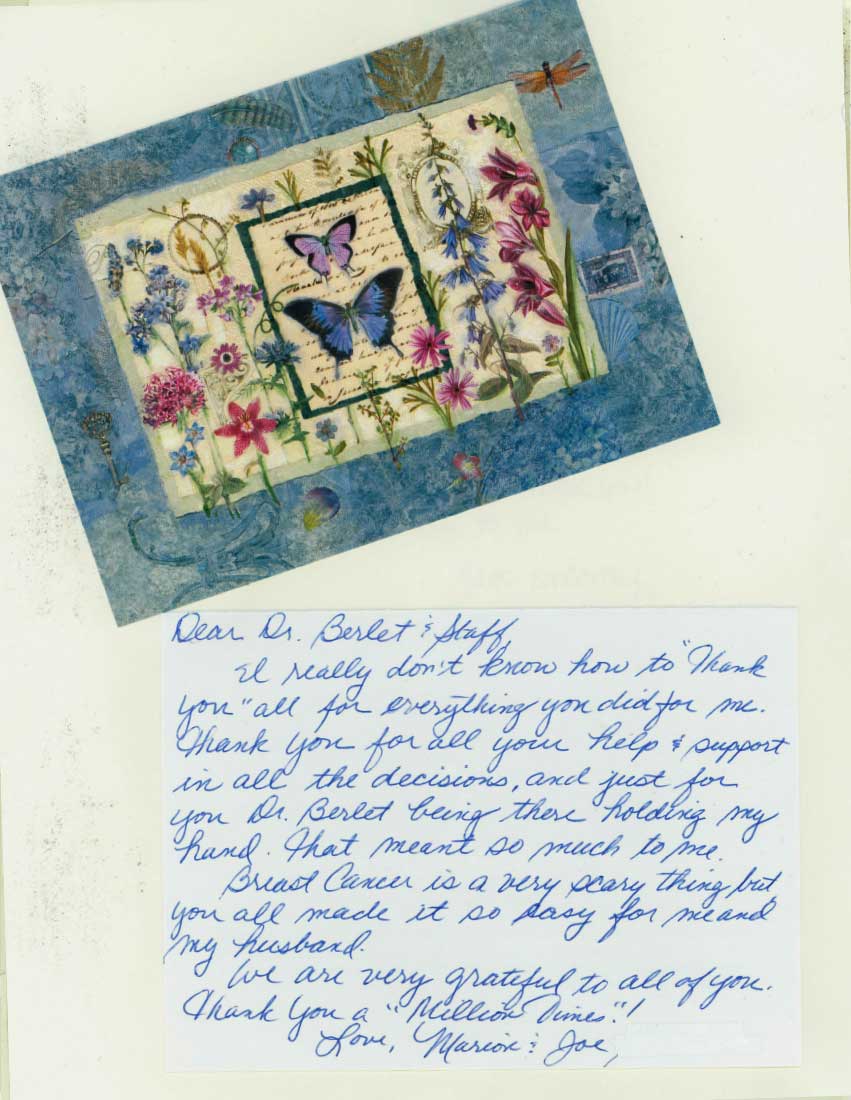 Dear Dr. Berlet & Staff,
I really don't know how to "Thank
you" all for everything you did for me.
Thank you for all your help & support
in all the decisions, and just for
you Dr. Berlet being there holding my
hand. That meant so much to me.
Breast Cancer is a very scary thing but
you all made it so easy for me and
my husband.
We are very grateful to all of you.
Thank You a "Million Times"!
Love, Marion & Joe,